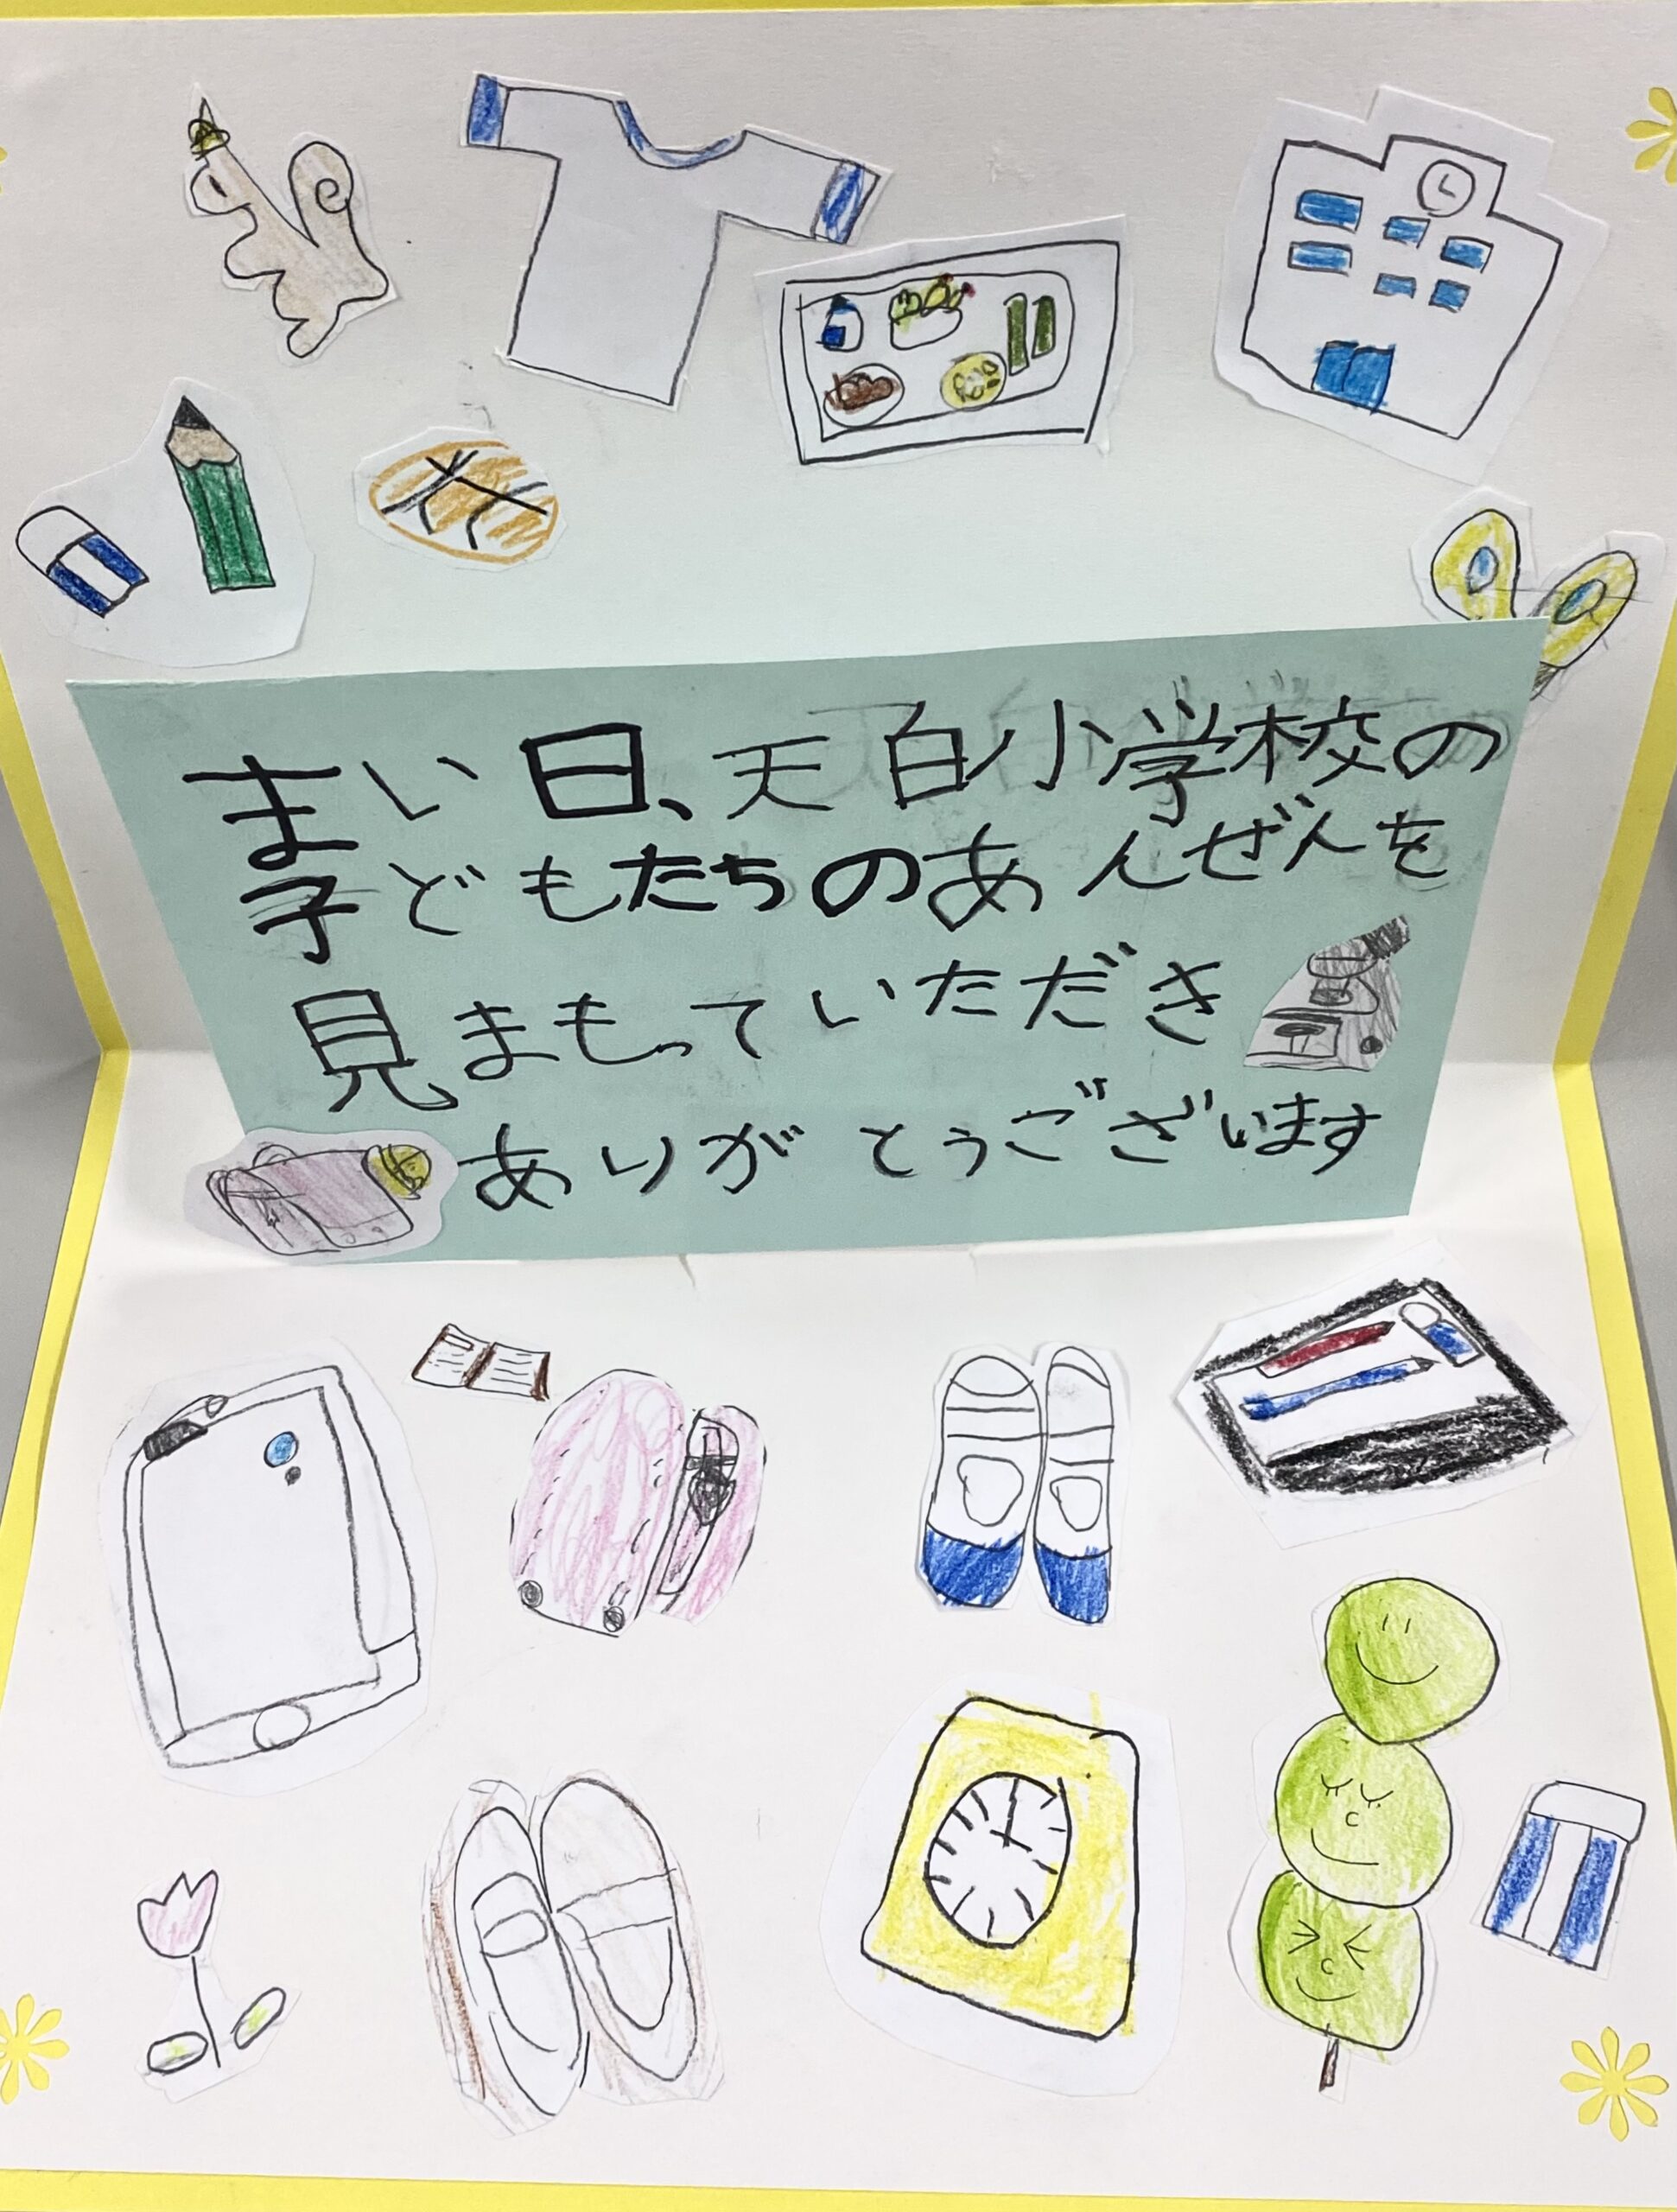 まい日、天白小学校の
子どもたちのあんぜんを
見まもっていただき
ありがとうございます